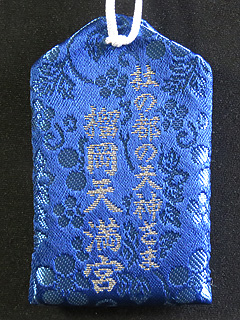 杜の都の天神さま
榴岡天満宮